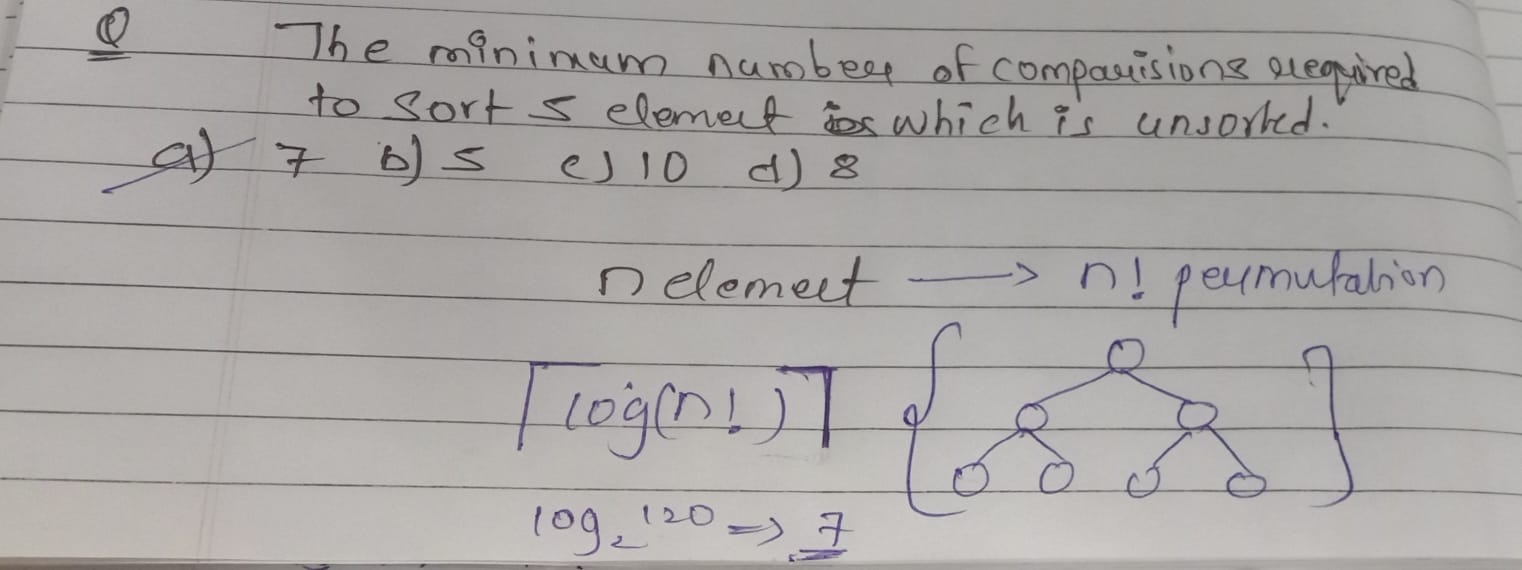 Q The minimum number of comparisions required
to sort 5 element which is unsorted.
a) 7 b) 5 c) 10 d) 8
n element → n! permutation
⌈log(n!)⌉
log₂120 => 7